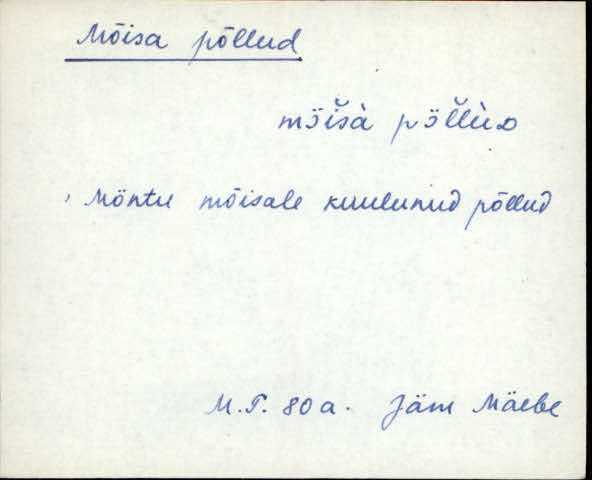 Mõisa põllud
möišà pöl̆l̆ùD
Möntu mõisale kuulunud põllud
M.T. 80 a. Jäm Mäebe